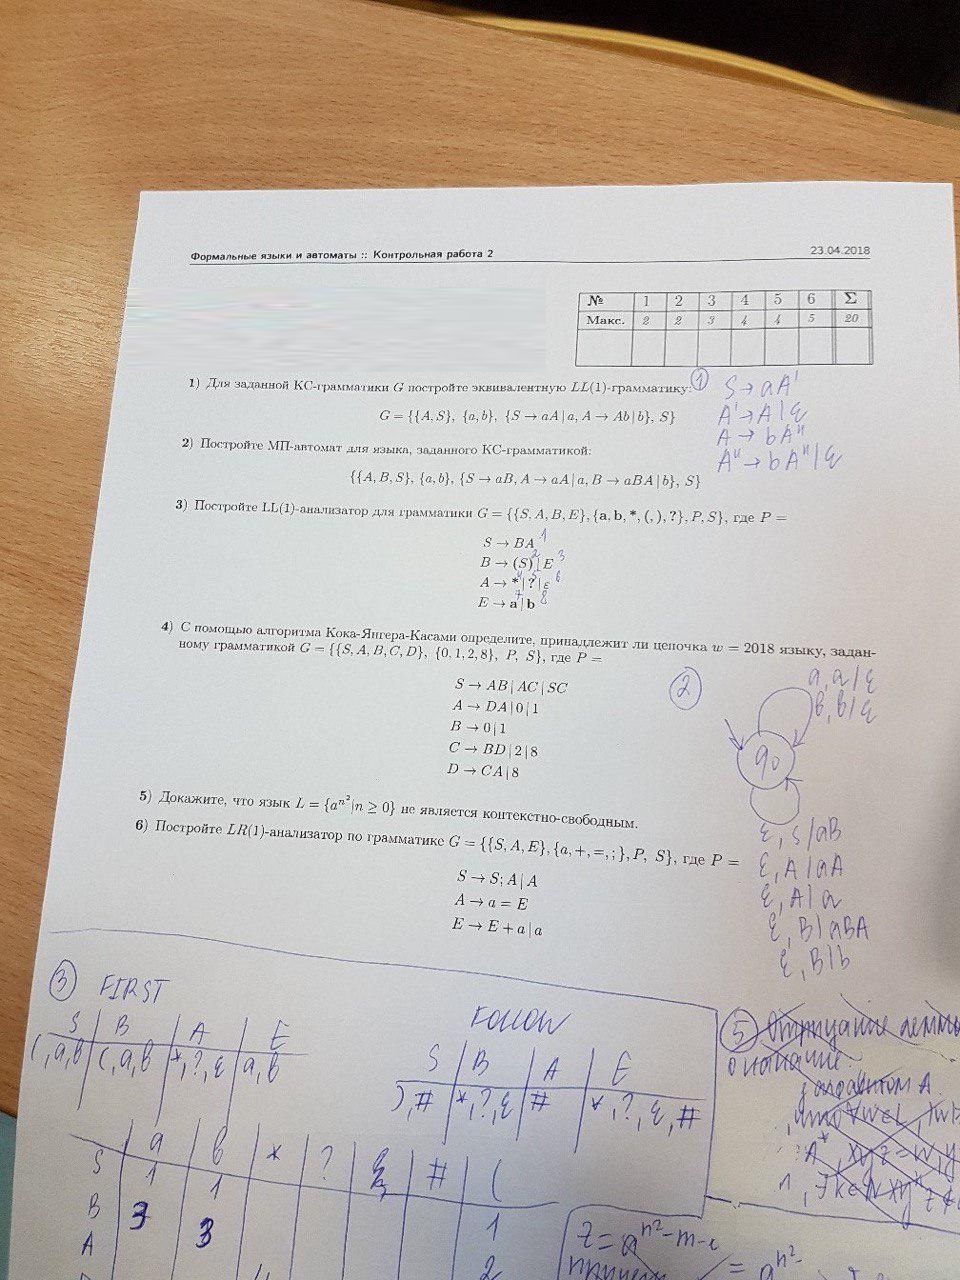 Формальные языки и автоматы :: Контрольная работа 2
23.04.2018
№ 1 2 3 4 5 6 Σ
Макс. 2 2 3 4 4 5 20
1) Для заданной КС-грамматики G постройте эквивалентную LL(1)-грамматику:
G = {{A, S}, {a, b}, {S → aA | a, A → Ab | b}, S}
① S → aA'
A' → A | ε
A → bA"
A" → bA" | ε
2) Постройте МП-автомат для языка, заданного КС-грамматикой:
{{A, B, S}, {a, b}, {S → aB, A → aA | a, B → aBA | b}, S}
3) Постройте LL(1)-анализатор для грамматики G = {{S, A, B, E}, {a, b, *, (, ), ?}, P, S}, где P =
S → BA 1
B → (S) 2 | E 3
A → * 4 | ? 5 | ε 6
E → a 7 | b 8
4) С помощью алгоритма Кока-Янгера-Касами определите, принадлежит ли цепочка w = 2018 языку, задан-
ному грамматикой G = {{S, A, B, C, D}, {0, 1, 2, 8}, P, S}, где P =
S → AB | AC | SC
A → DA | 0 | 1
B → 0 | 1
C → BD | 2 | 8
D → CA | 8
②
a, a / ε
b, b / ε
q₀
ε, S / aB
ε, A / aA
ε, A / a
ε, B / aBA
ε, B / b
5) Докажите, что язык L = {aⁿ² | n ≥ 0} не является контекстно-свободным.
6) Постройте LR(1)-анализатор по грамматике G = {{S, A, E}, {a, +, =, ; }, P, S}, где P =
S → S; A | A
A → a = E
E → E + a | a
③ FIRST
S B A E
(, a, b (, a, b *, ?, ε a, b
FOLLOW
S B A E
), # *, ?, ε # *, ?, ε, #
a b * ? # (
S 1 1 1
B 3 3 2
A
⑤ Отрицание
о накачке
z = a